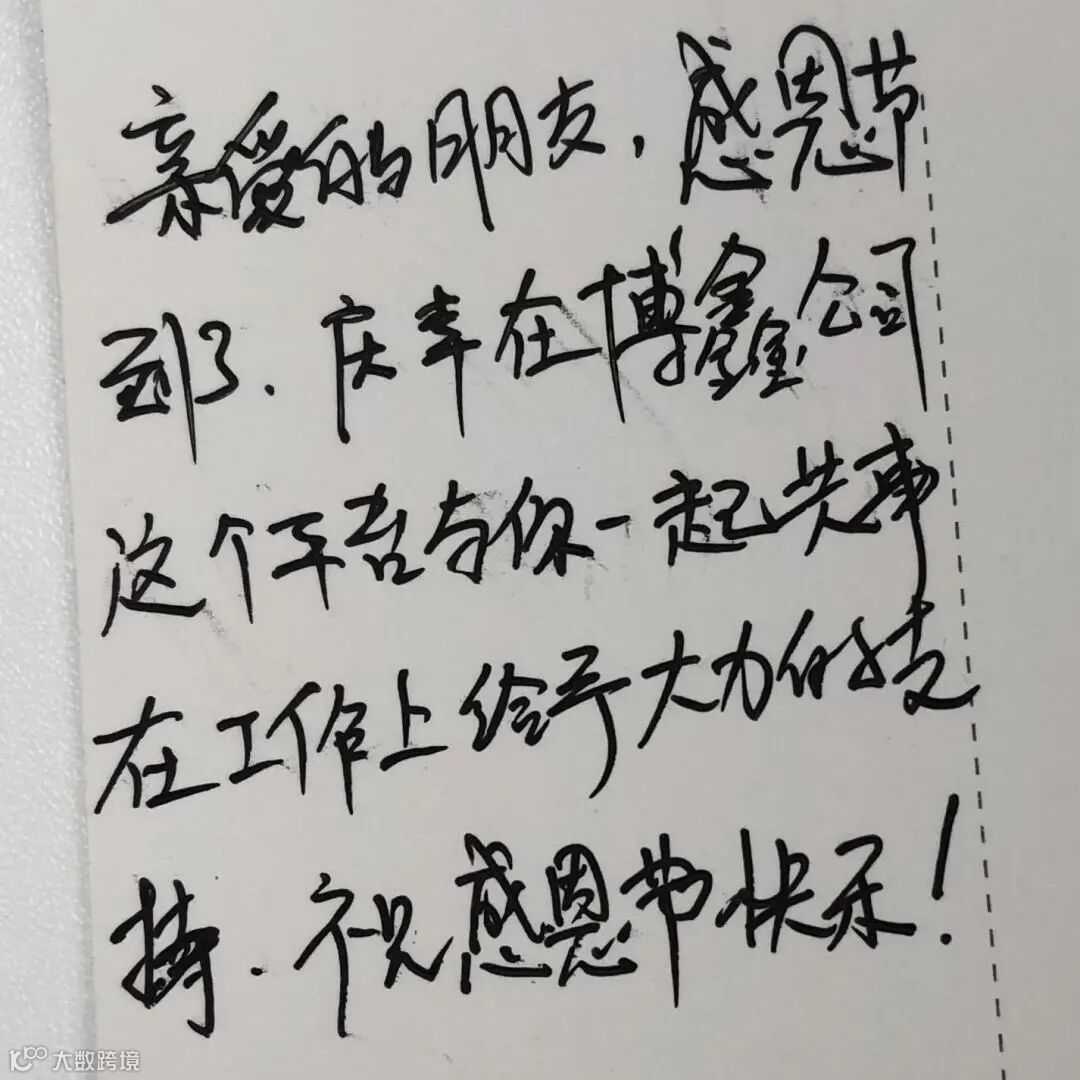 亲爱的朋友,感恩节
到了.庆幸在博鑫公司
这个平台与你一起共事
在工作上给予大力的支
持.祝感恩节快乐!
大数跨境